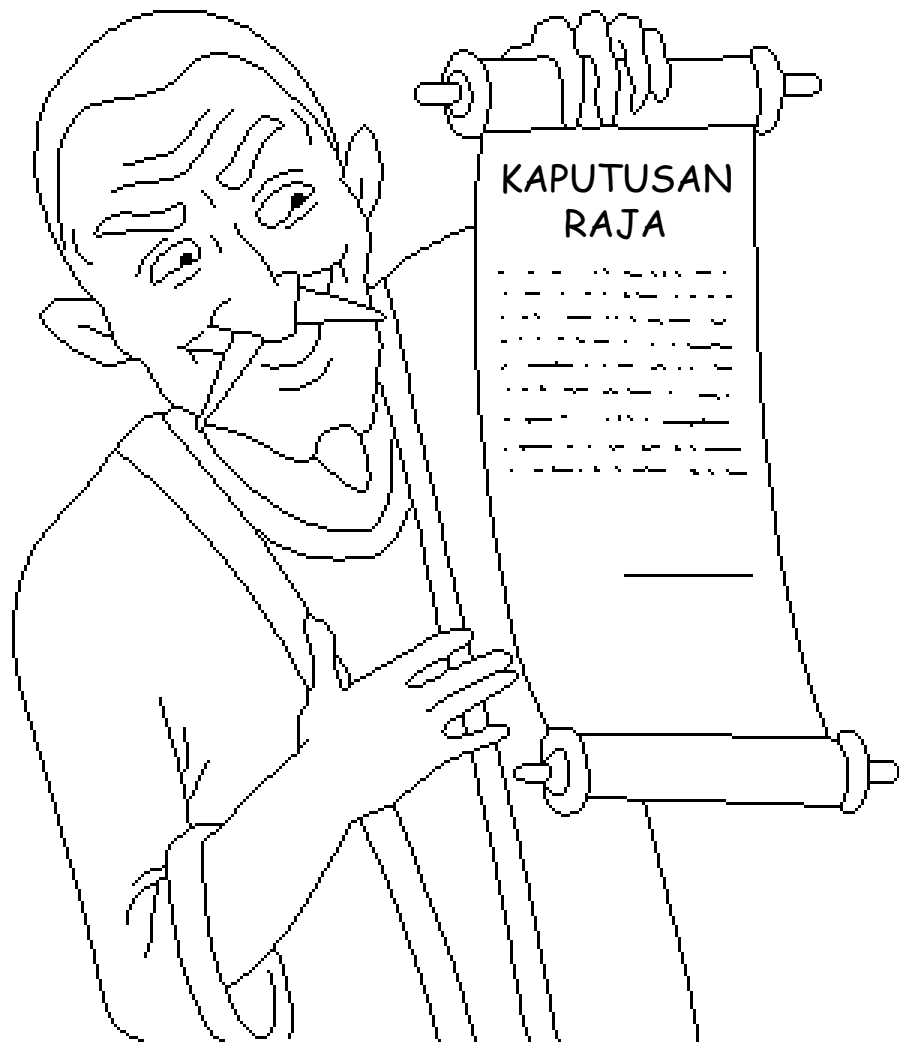 KAPUTUSAN
RAJA